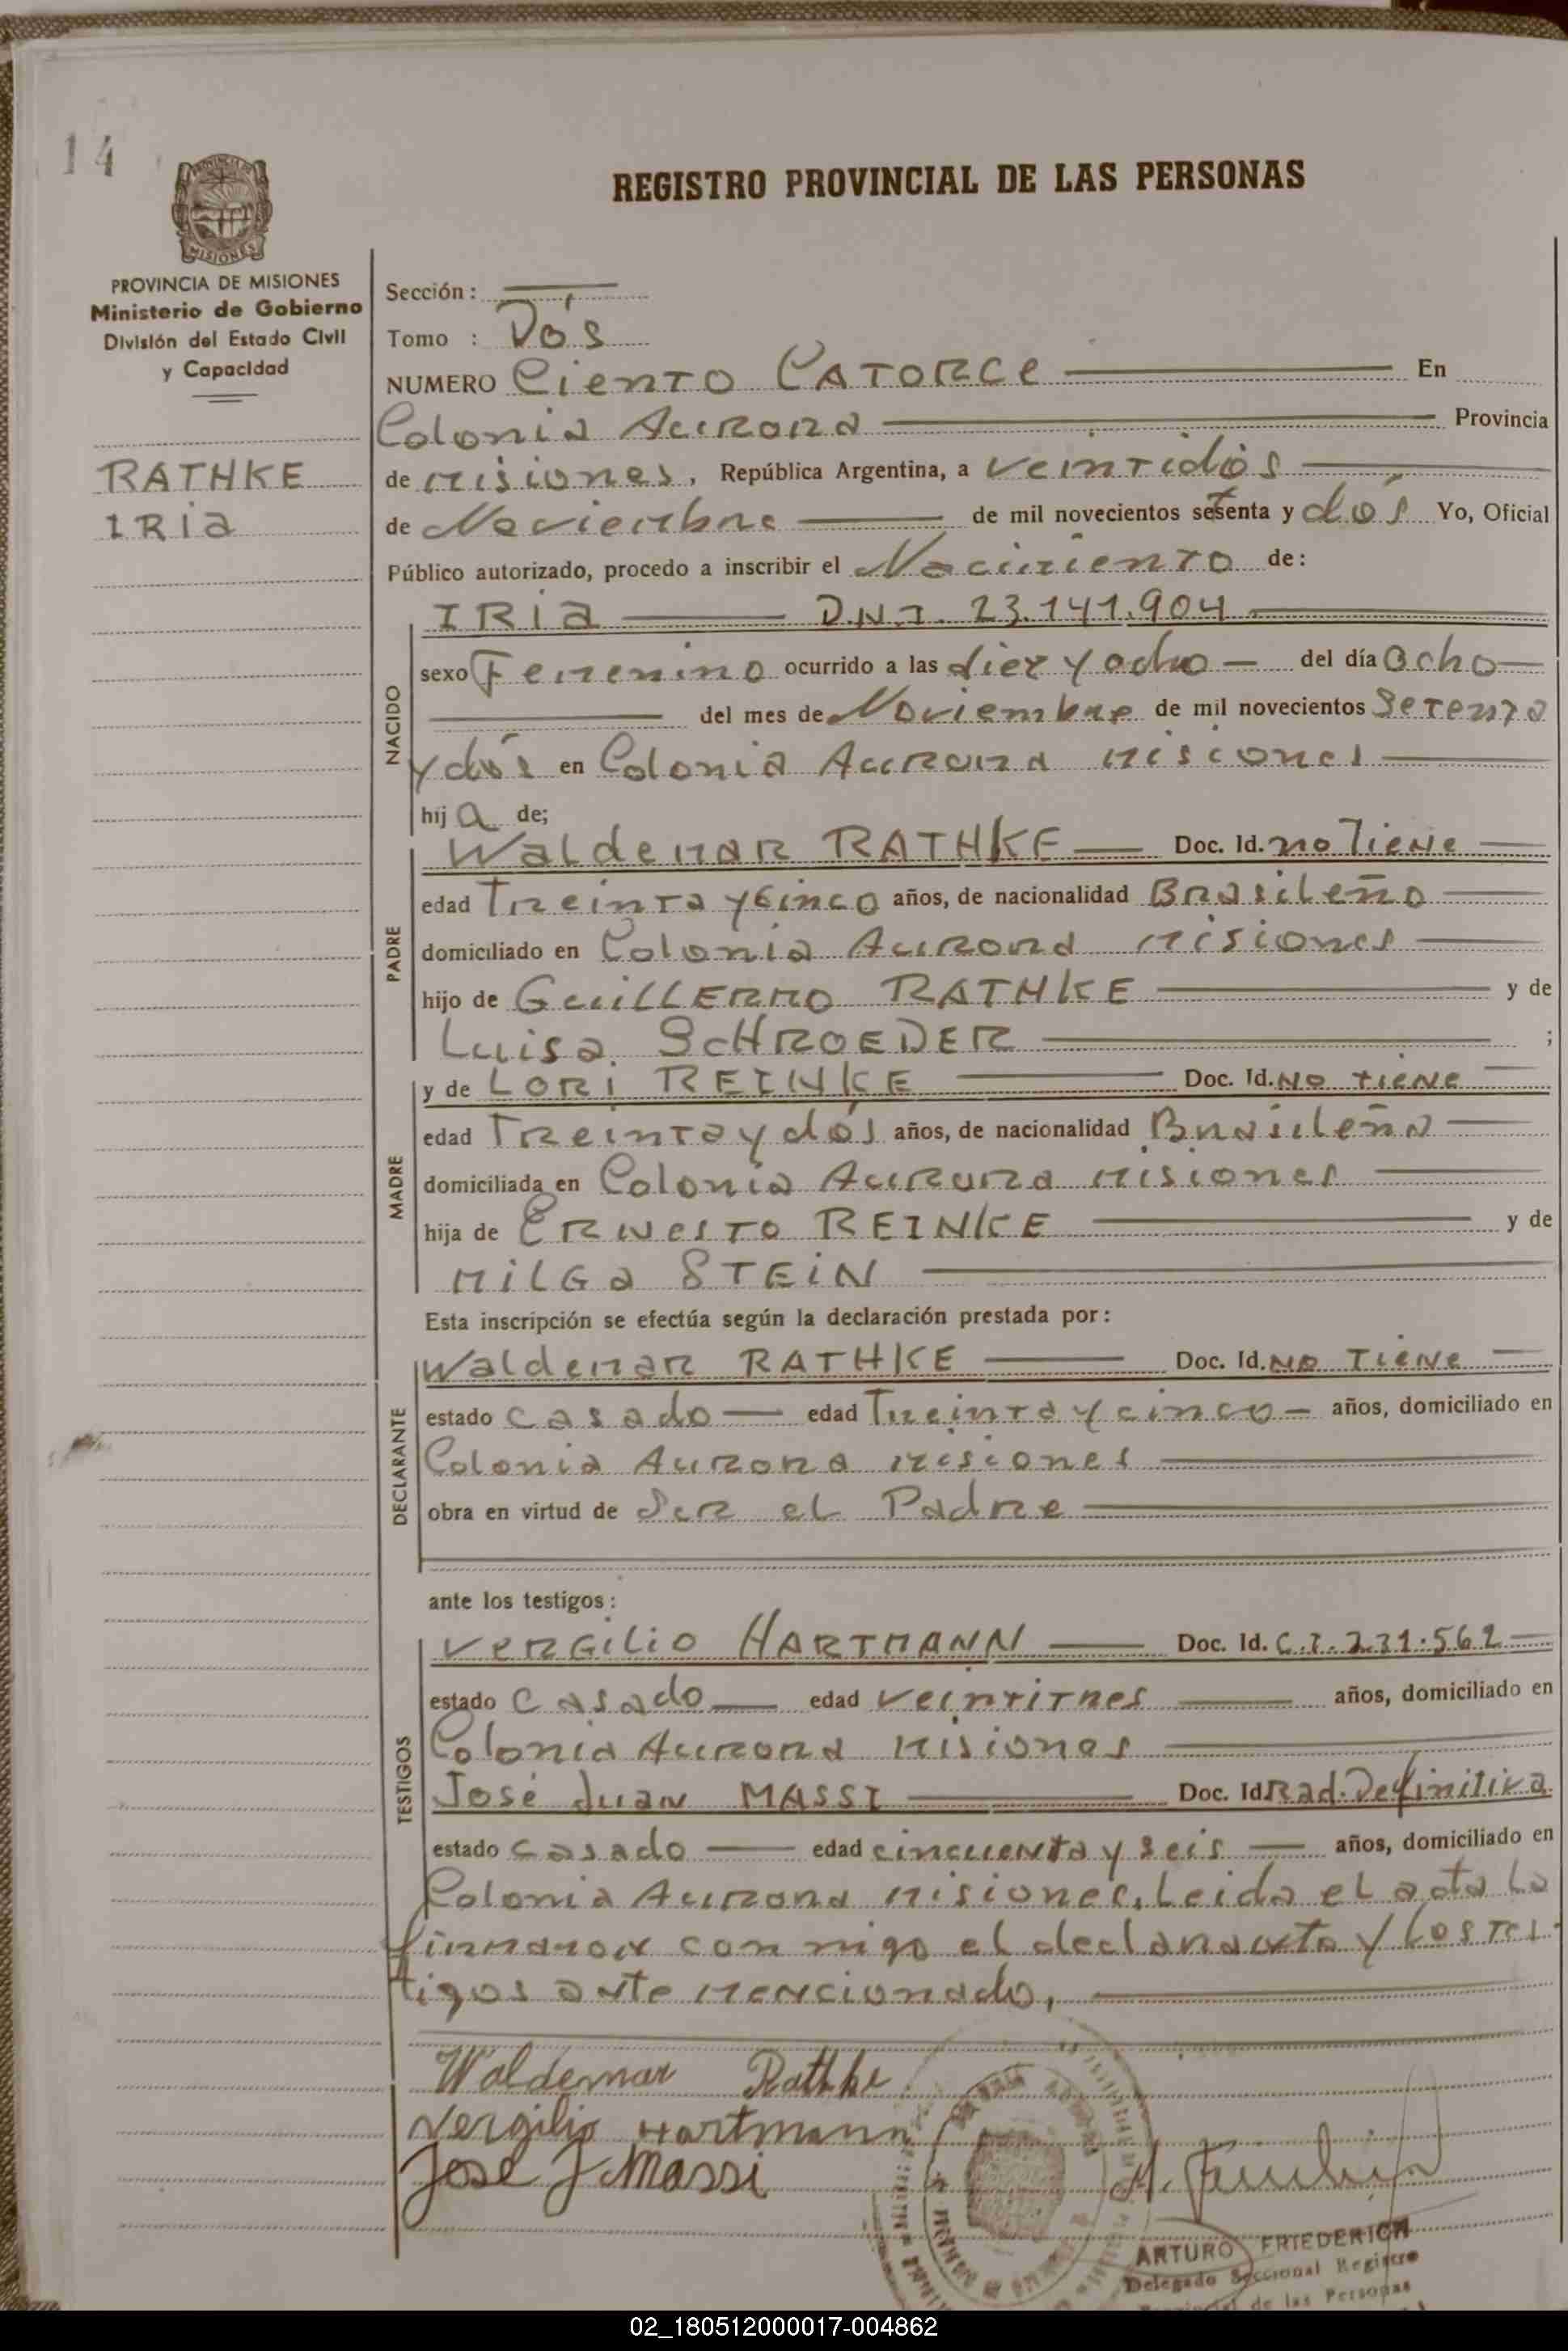 14
PROVINCIA DE MISIONES
Ministerio de Gobierno
División del Estado Civil
y Capacidad
RATHKE
IRia
REGISTRO PROVINCIAL DE LAS PERSONAS
Sección:
Tomo : Dós
NUMERO Ciento CATORCE En
Colonia Aurora Provincia
de Misiones, República Argentina, a veintidós
de Noviembre de mil novecientos setenta y dós Yo, Oficial
Público autorizado, procedo a inscribir el Nacimiento de:
IRia D.N.I. 23.141.904
NACIDO
sexo Femenino ocurrido a las diez y ocho del día Ocho
del mes de Noviembre de mil novecientos Setenta
y dós en Colonia Aurora Misiones
hij a de;
PADRE
Waldemar RATHKE Doc. Id. no Tiene
edad Treinta y Cinco años, de nacionalidad Brasileño
domiciliado en Colonia Aurora Misiones
hijo de GuiLLERMO RATHKE y de
Luisa SCHROEDER ;
MADRE
y de LORi REINKE Doc. Id. No tiene
edad Treinta y dós años, de nacionalidad Brasileña
domiciliada en Colonia Aurora Misiones
hija de ERNesTO REINKE y de
MiLGa STEiN
Esta inscripción se efectúa según la declaración prestada por:
DECLARANTE
Waldemar RATHKE Doc. Id. No Tiene
estado Casado edad Treinta y cinco años, domiciliado en
Colonia Aurora Misiones
obra en virtud de Ser el Padre
ante los testigos:
TESTIGOS
VerGiLio HARTMANN Doc. Id. C.I. 231.562
estado Casado edad veintitres años, domiciliado en
Colonia Aurora Misiones
José Juan MASSI Doc. Id Rad. Definitiva
estado casado edad cincuenta y seis años, domiciliado en
Colonia Aurora Misiones, Leida el acta La
firmaron con migo el declarante y Los tes-
tigos ante mencionado,
Waldemar Rathke
Vergilio Hartmann
José J. Massi
ARTURO FRIEDERICH
Delegado Seccional Registro
Provincial de las Personas
02_180512000017-004862